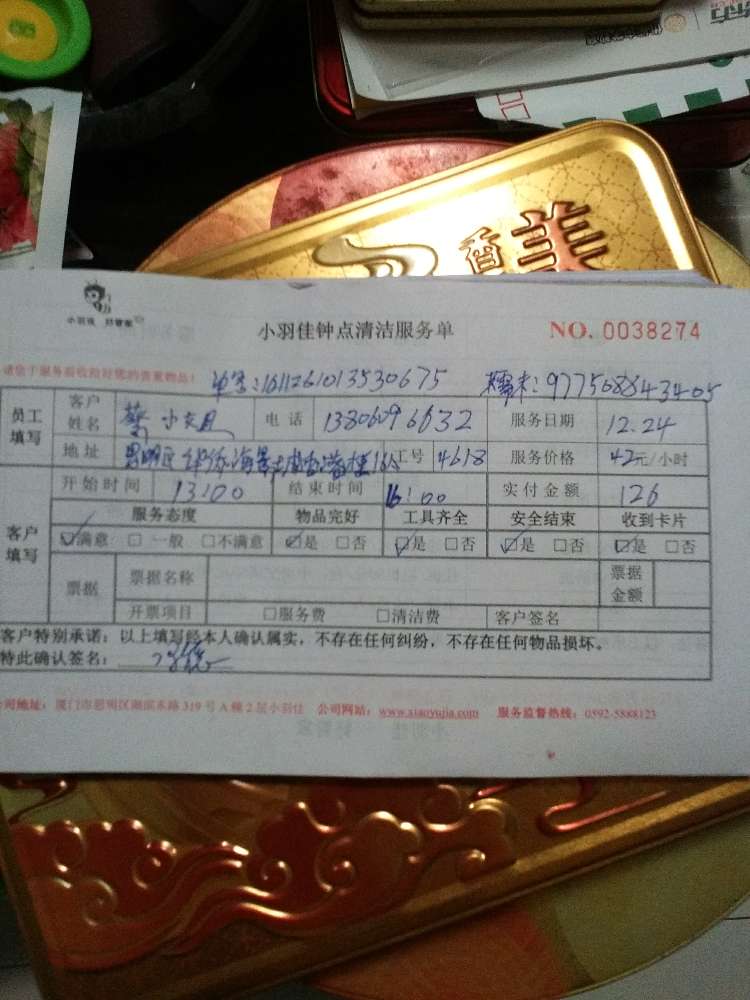 小羽佳 好管家
小羽佳钟点清洁服务单
NO. 0038274
请您于服务前收拾好您的贵重物品!
单号:1611261013530675
977568843405
员工填写 客户姓名 蔡小姐 电话 13806096632 服务日期 12.24
地址 思明区 工号 4618 服务价格 42元/小时
开始时间 13:00 结束时间 16:00 实付金额 126
客户填写 服务态度 物品完好 工具齐全 安全结束 收到卡片
☑满意 □一般 □不满意 ☑是 □否 ☑是 □否 ☑是 □否 ☑是 □否
票据 票据名称 票据金额
开票项目 □服务费 □清洁费 客户签名
客户特别承诺:以上填写经本人确认属实,不存在任何纠纷,不存在任何物品损坏。
特此确认签名:
公司地址:厦门市思明区湖滨东路319号A幢2层小羽佳 公司网站:www.xiaoyujia.com 服务监督热线:0592-5888123